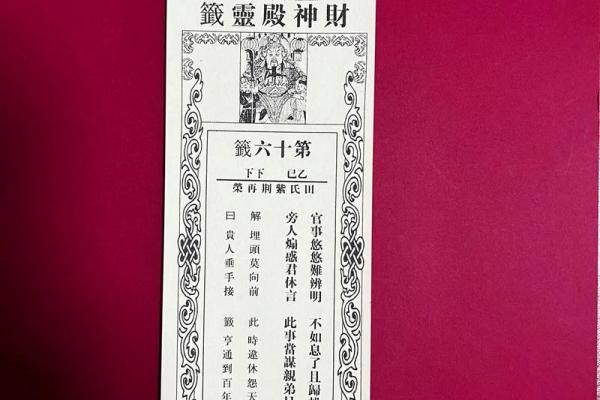 財神殿靈籤
第十六籤
乙巳 下下
田氏紫荊再榮
官事悠悠難辨明 不如息了且歸
旁人煽惑君休言 此事當謀親弟
解 埋頭莫向前 此 時違休怨天
曰 貴人垂手接 籤 亨通到百年